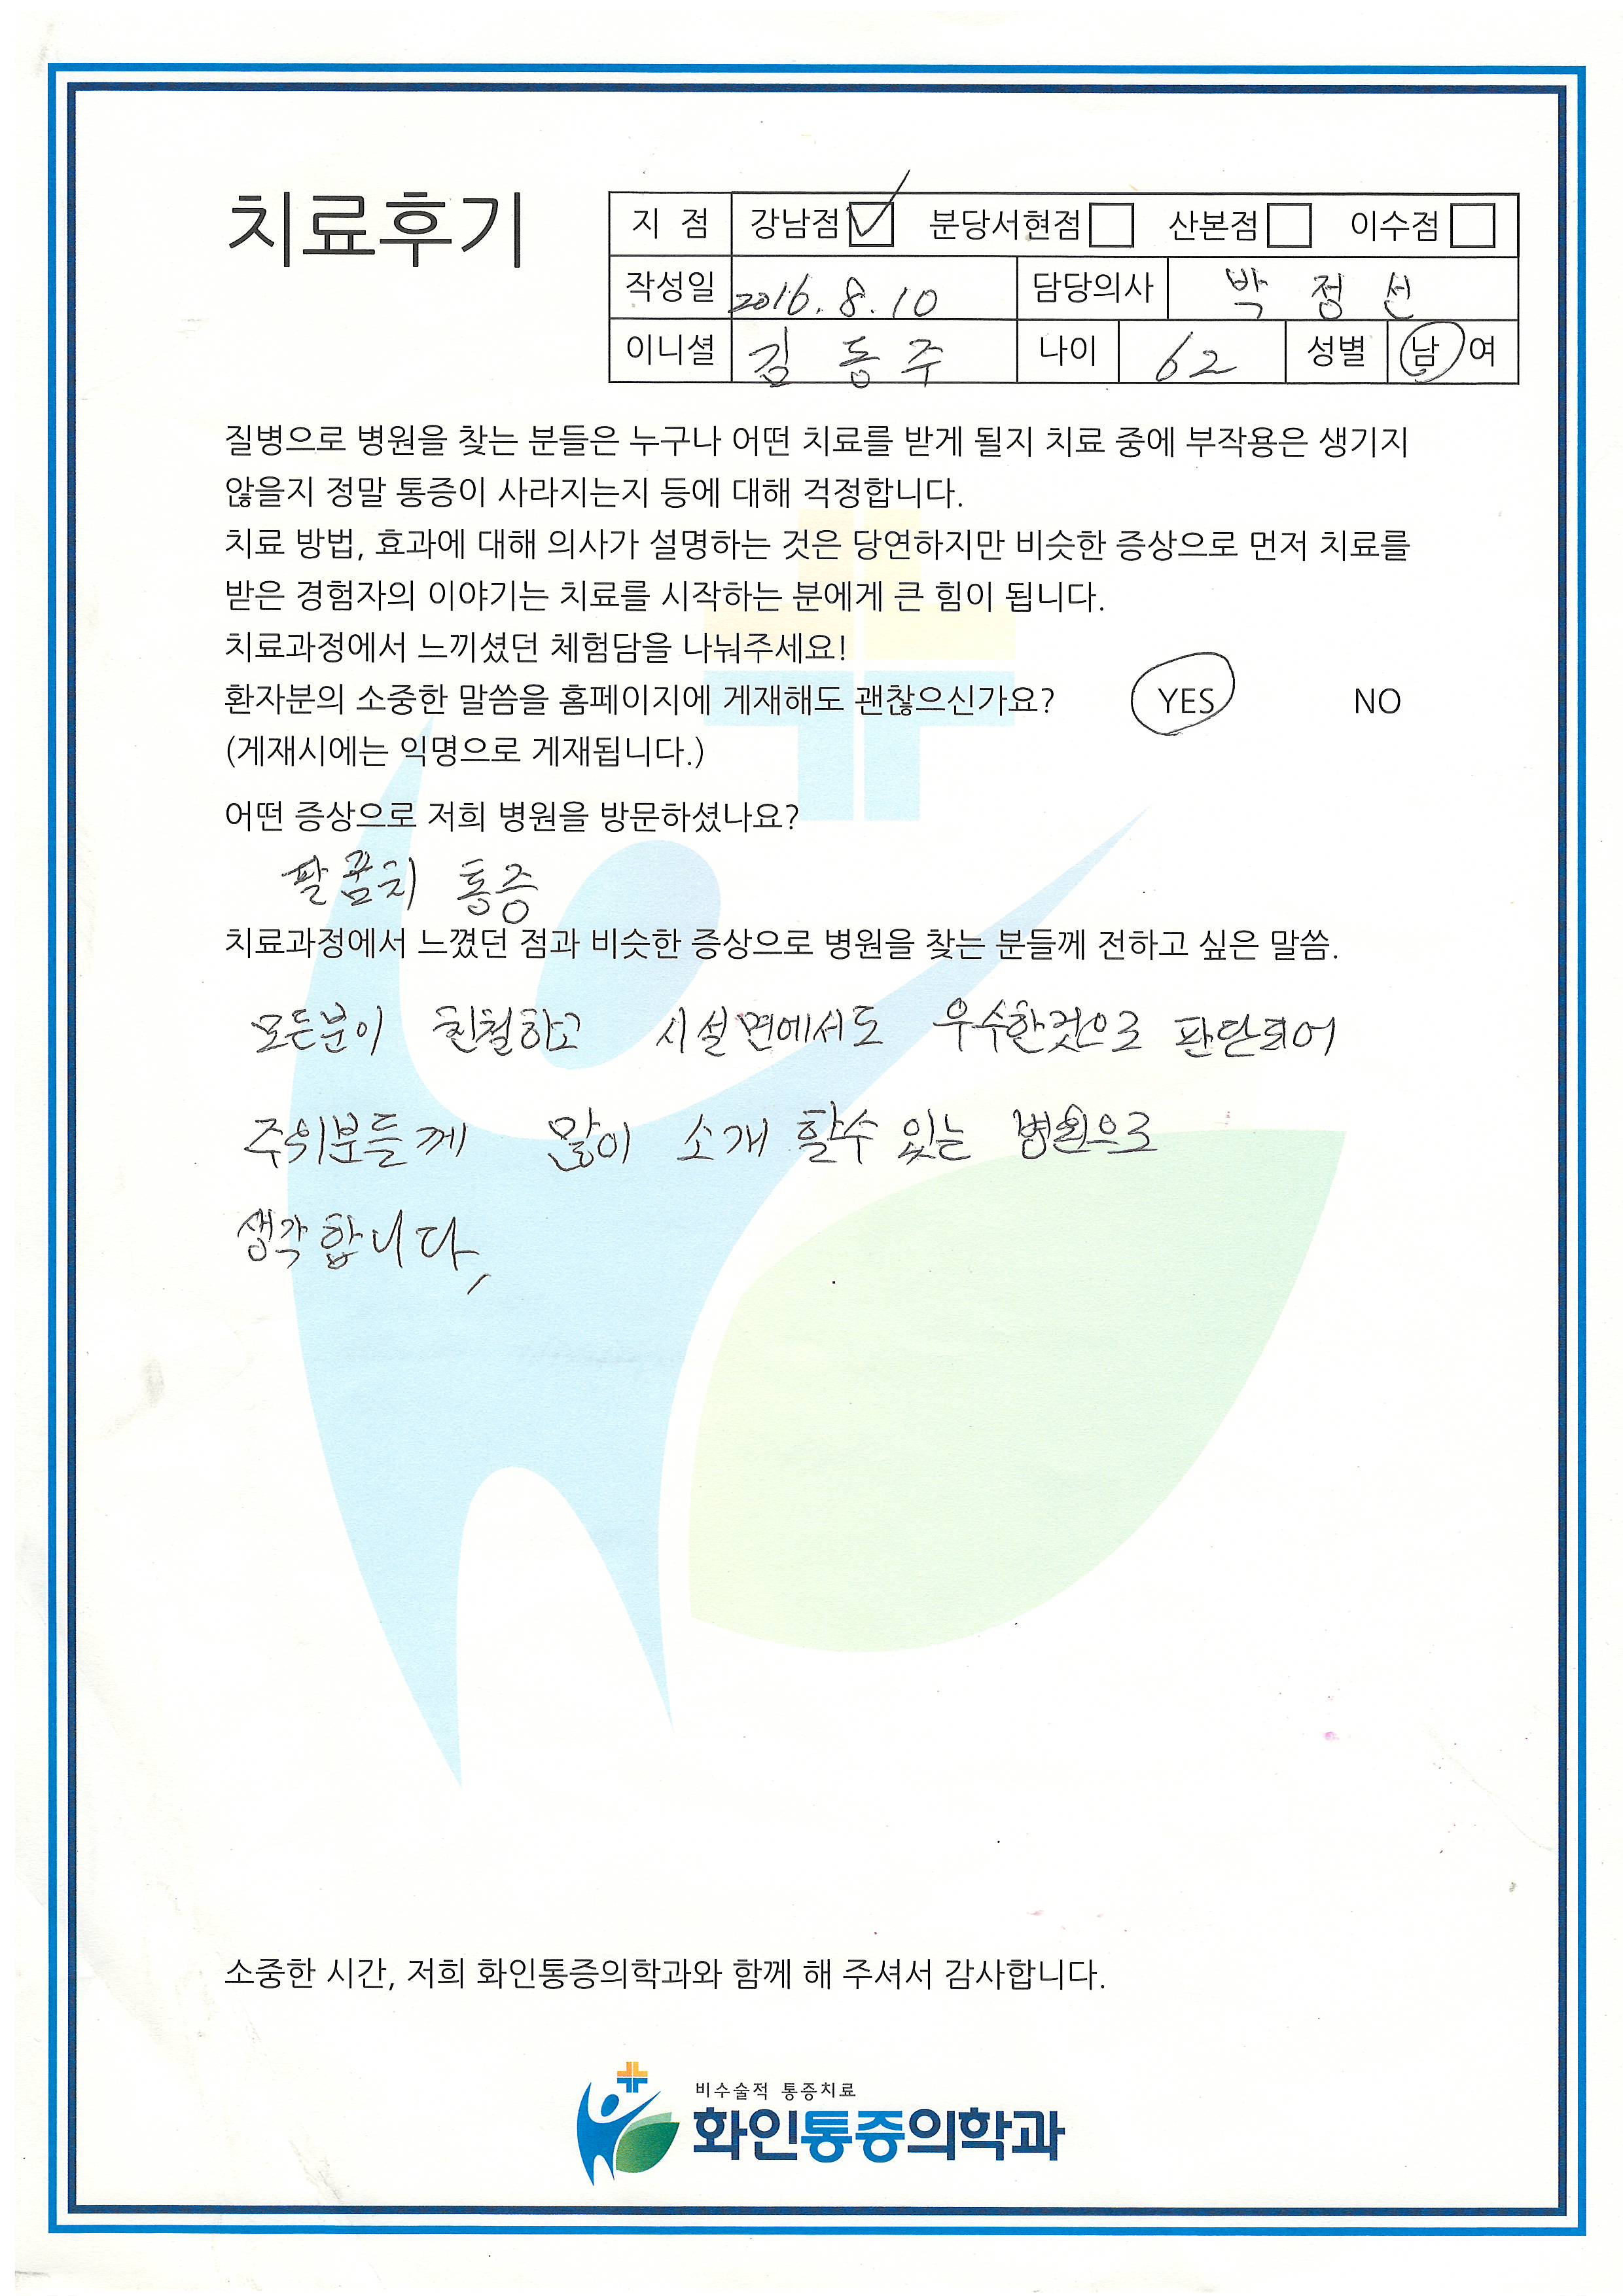 치료후기
지 점 강남점 ✓ 분당서현점 □ 산본점 □ 이수점 □
작성일 2016. 8. 10 담당의사 박 정 선
이니셜 김 동 주 나이 62 성별 남 여
질병으로 병원을 찾는 분들은 누구나 어떤 치료를 받게 될지 치료 중에 부작용은 생기지
않을지 정말 통증이 사라지는지 등에 대해 걱정합니다.
치료 방법, 효과에 대해 의사가 설명하는 것은 당연하지만 비슷한 증상으로 먼저 치료를
받은 경험자의 이야기는 치료를 시작하는 분에게 큰 힘이 됩니다.
치료과정에서 느끼셨던 체험담을 나눠주세요!
환자분의 소중한 말씀을 홈페이지에 게재해도 괜찮으신가요? YES NO
(게재시에는 익명으로 게재됩니다.)
어떤 증상으로 저희 병원을 방문하셨나요?
팔꿈치 통증
치료과정에서 느꼈던 점과 비슷한 증상으로 병원을 찾는 분들께 전하고 싶은 말씀.
모든분이 친절하고 시설면에서도 우수한것으로 판단되어
주위분들께 많이 소개 할수 있는 병원으로
생각합니다,
소중한 시간, 저희 화인통증의학과와 함께 해 주셔서 감사합니다.
비수술적 통증치료
화인통증의학과